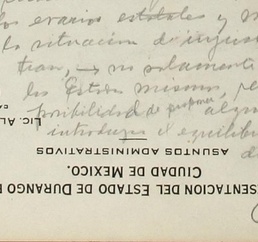 los erarios estatales y
la situación de injus
tran, — no solamente
los Estados mismos, re
posibilidad de proponer algun
introduzca el equilibri
LIC. AL
ASUNTOS ADMINISTRATIVOS
CIUDAD DE MEXICO.
SENTACION DEL ESTADO DE DURANGO E